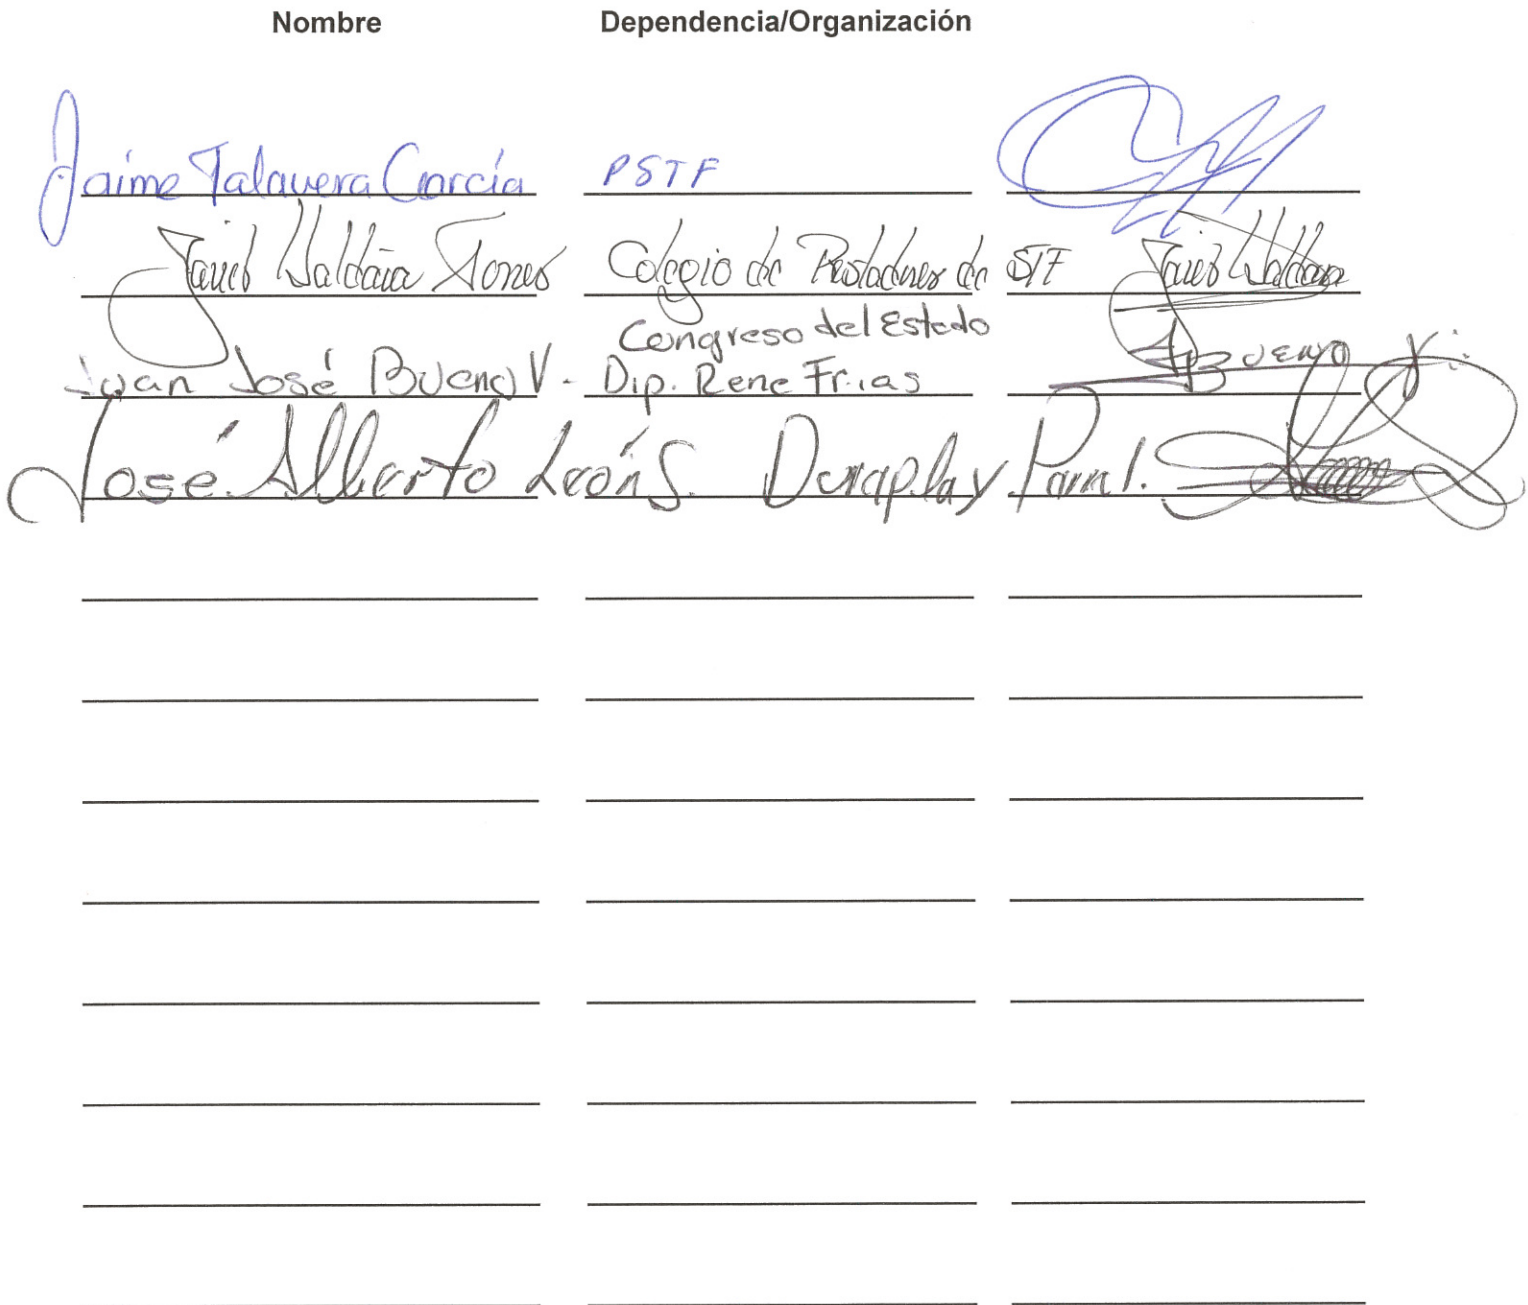 Nombre Dependencia/Organización
Jaime Talavera García PSTF
Javier Saldaña Flores Colegio de Prestadores de STF Javier Saldaña
Congreso del Estado
Juan José Bueno V. Dip. Rene Frias Bueno V.
José Alberto León S. Duraplay Parral.